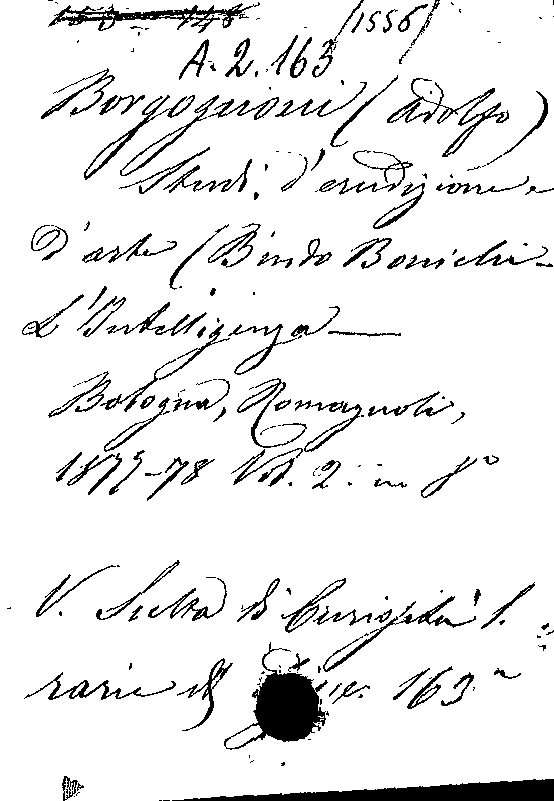 (1556)
A. 2. 163
Borgognoni (Adolfo)
Studi d'erudizione e
d'arte (Bindo Bonichi -
L'Intelligenza —
Bologna, Romagnoli,
1877-78 Vol. 2. in 8°
V. Scelta di Curiosità l.
rarie 163ª